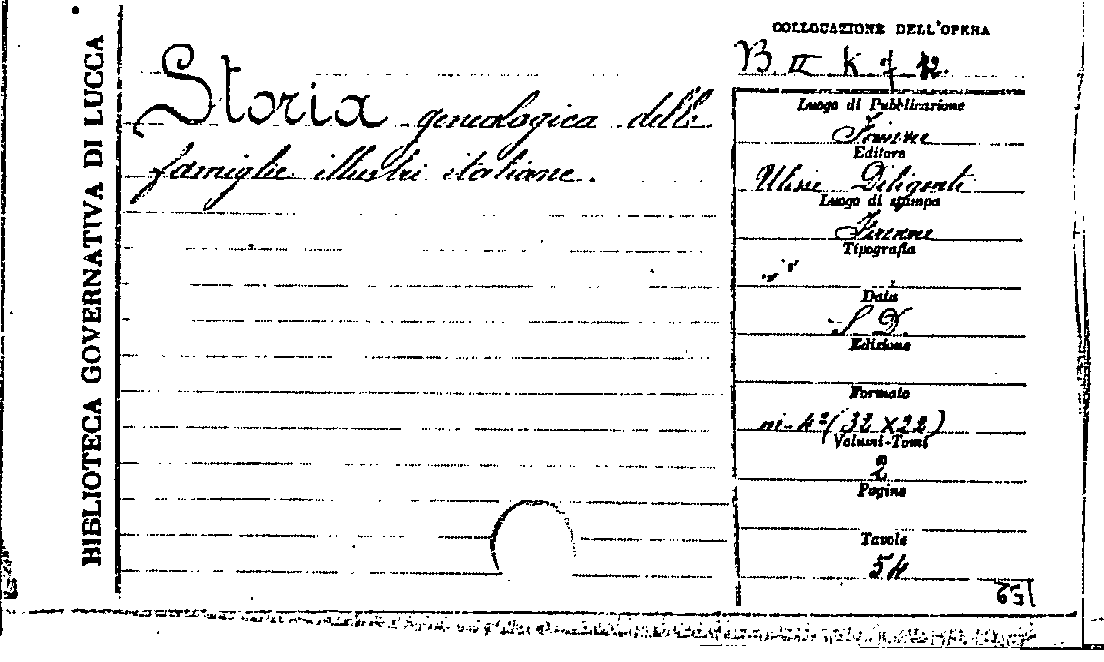 BIBLIOTECA GOVERNATIVA DI LUCCA
Storia genealogica delle
famiglie illustri italiane.
COLLOCAZIONE DELL'OPERA
B II K
Luogo di Pubblicazione
Firenze
Editore
Ulisse Diligenti
Luogo di stampa
Firenze
Tipografia
Data
S D.
Edizione
Formato
in-4º (32 X 22)
Volumi-Tomi
2
Pagine
Tavole
54